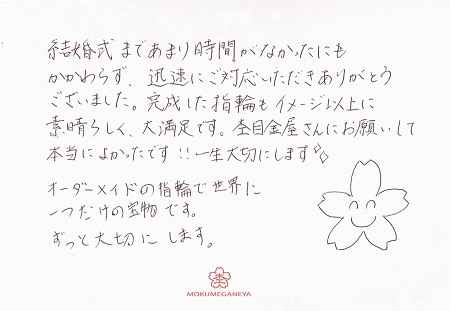 結婚式まであまり時間がなかったにも
かかわらず、迅速にご対応いただきありがとう
ございました。完成した指輪もイメージ以上に
素晴らしく、大満足です。杢目金屋さんにお願いして
本当によかったです!!一生大切にします
オーダーメイドの指輪で世界に
一つだけの宝物です。
ずっと大切にします。
MOKUMEGANEYA